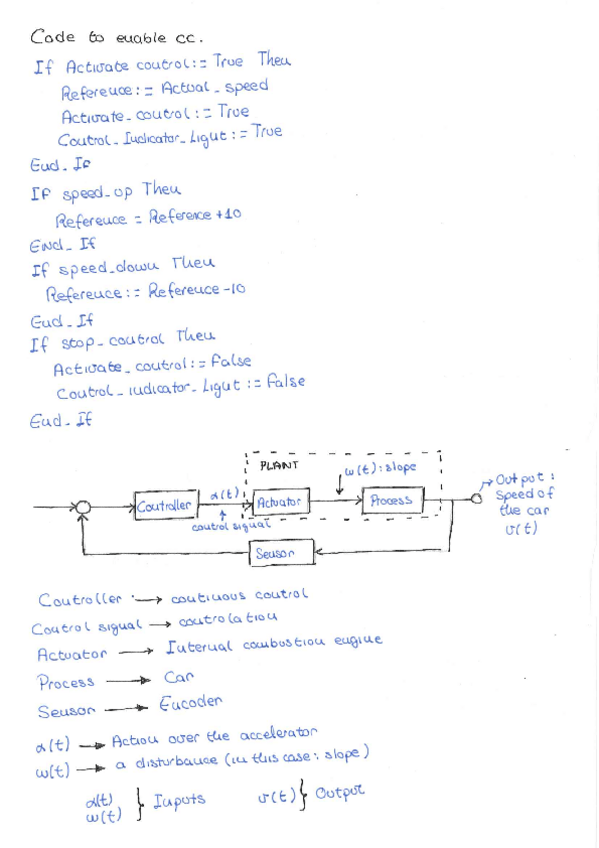 Code to enable cc.
If Activate control:= True Then
Reference:= Actual_speed
Activate_control:= True
Control_Indicator_Light:= True
End_If
If speed_up Then
Reference = Reference +10
End_If
If speed_down Then
Reference:= Reference-10
End_If
If stop_control Then
Activate_control:= False
Control_indicator_Light:= False
End_If
PLANT
w(t): slope
Output:
Speed of
the car
v(t)
Controller
α(t)
Actuator
Process
control signal
Sensor
Controller :→ continuous control
Control signal → controlation
Actuator → Internal combustion engine
Process → Car
Sensor → Encoder
α(t) → Action over the accelerator
w(t) → a disturbance (in this case: slope)
α(t)
w(t) } Inputs v(t) } Output